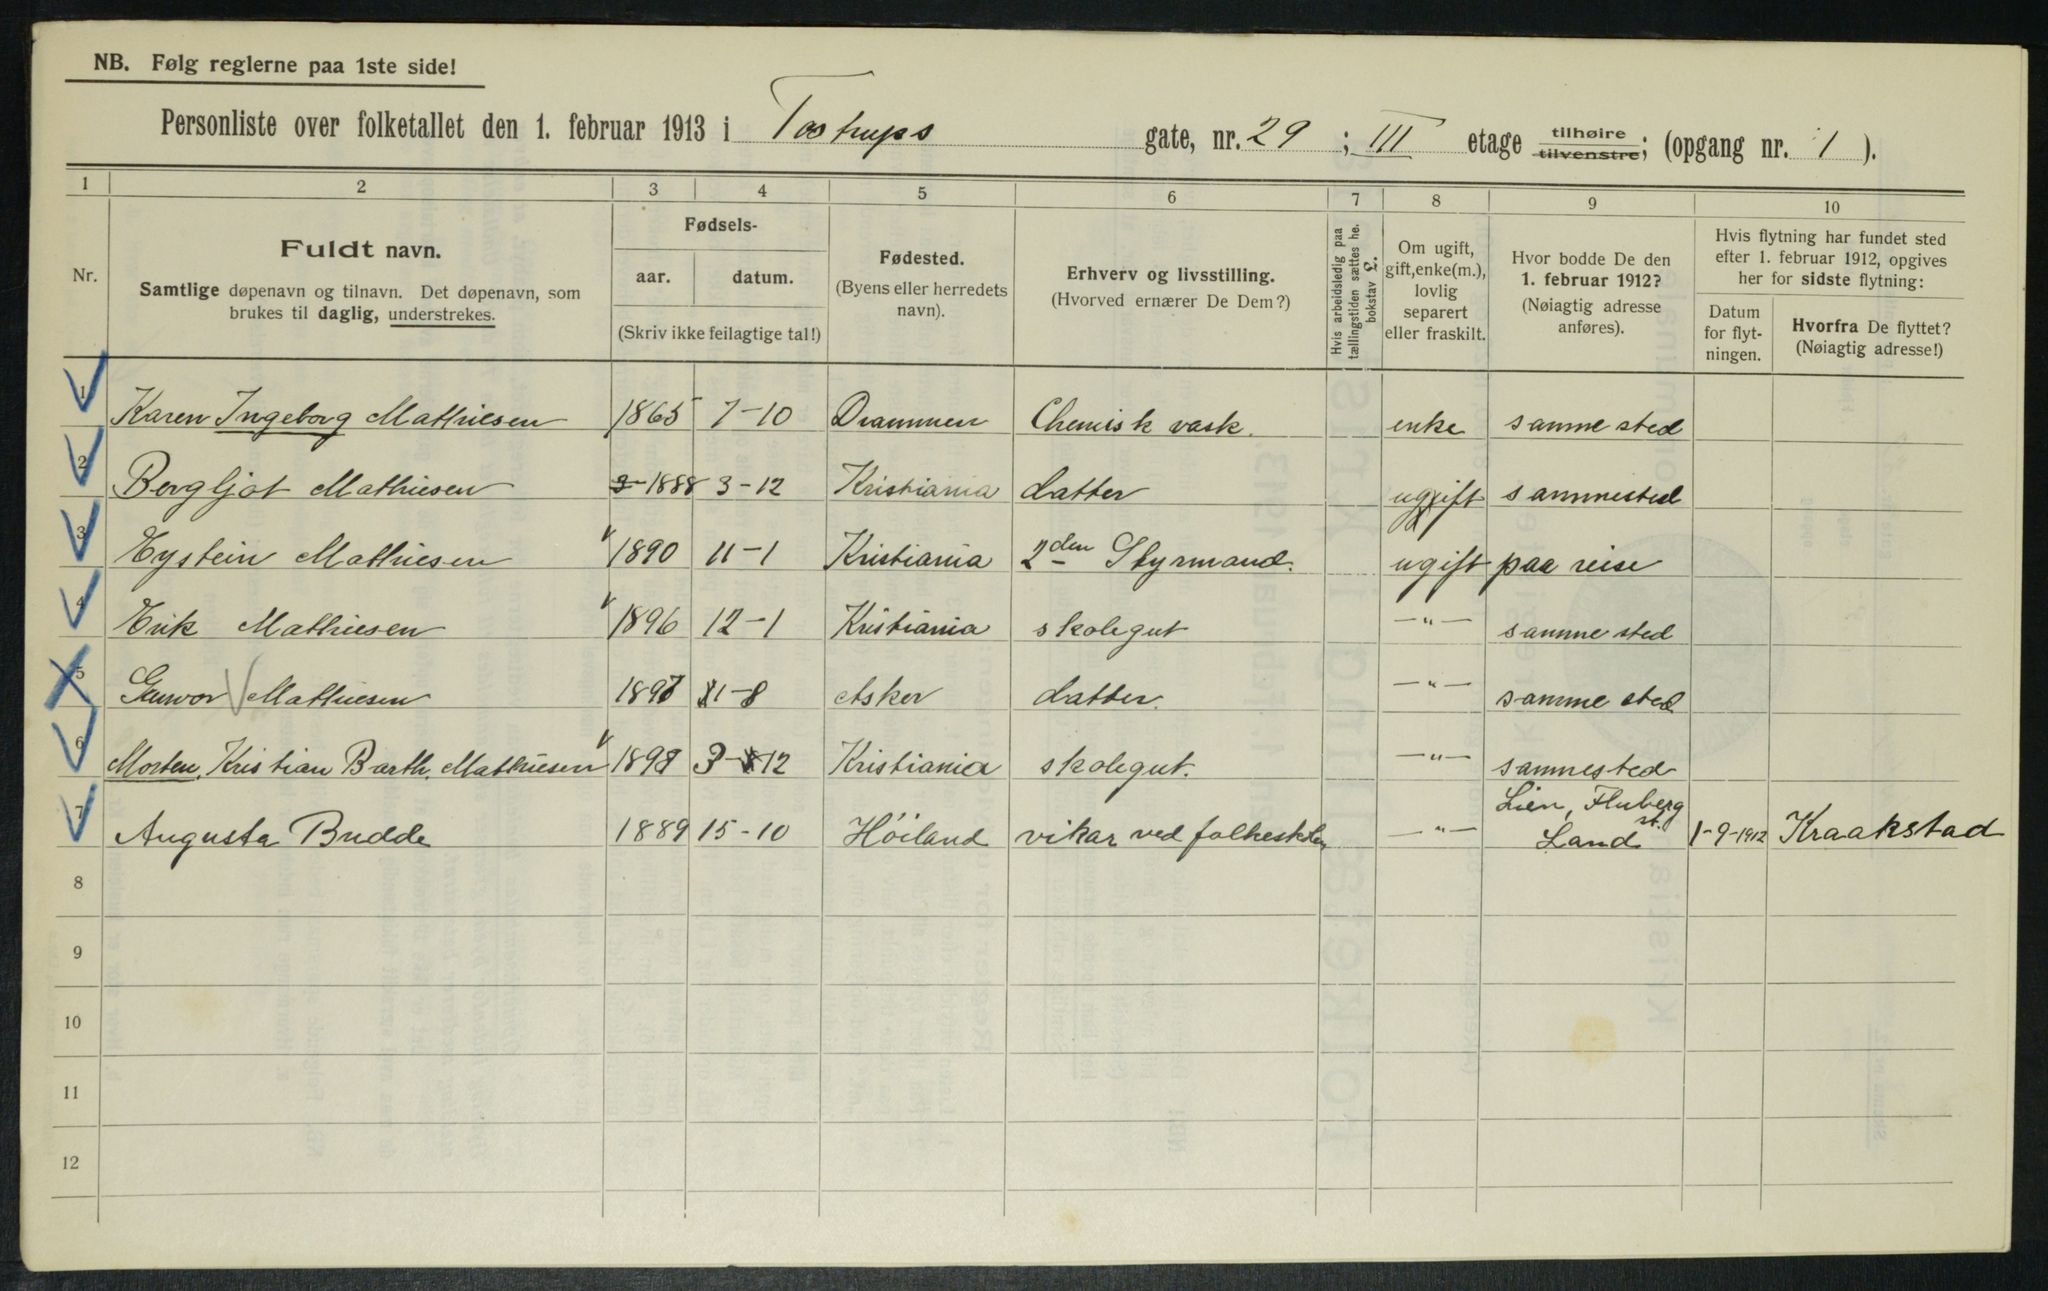 NB. Følg reglerne paa 1ste side!
Personliste over folketallet den 1. februar 1913 i Tostrups gate, nr. 29 ; III etage tilhøire tilvenstre; (opgang nr. 1 ).
1 2 3 4 5 6 7 8 9 10
Nr.
Fuldt navn.
Samtlige døpenavn og tilnavn. Det døpenavn, som
brukes til daglig, understrekes.
Fødsels-
aar. datum.
(Skriv ikke feilagtige tal!)
Fødested.
(Byens eller herredets
navn).
Erhverv og livsstilling.
(Hvorved ernærer De Dem?)
Hvis arbeidsledig paa
tællingstiden sættes he.
bokstav £.
Om ugift,
gift, enke(m.),
lovlig
separert
eller fraskilt.
Hvor bodde De den
1. februar 1912?
(Nøiagtig adresse
anføres).
Hvis flytning har fundet sted
efter 1. februar 1912, opgives
her for sidste flytning:
Datum
for flyt-
ningen.
Hvorfra De flyttet?
(Nøiagtig adresse!)
1 Karen Ingeborg Mathiesen 1865 7-10 Drammen Chemisk vask. enke samme sted
2 Bergljot Mathiesen 3- 1888 3-12 Kristiania datter ugift sammested
3 Eystein Mathiesen 1890 11-1 Kristiania 2den Styrmand. ugift paa reise
4 Erik Mathiesen 1896 12-1 Kristiania skolegut -"- samme sted
5 Gunvor Mathiesen 1897 1-8 Asker datter. -"- samme sted
6 Morten Kristian Barth. Mathiesen 1898 3-12 Kristiania skolegut. -"- sammested
7 Augusta Budde 1889 15-10 Höiland vikar ved folkeskolen -"- Lien, Fluberg st. Land 1-9-1912 Kraakstad
8
9
10
11
12